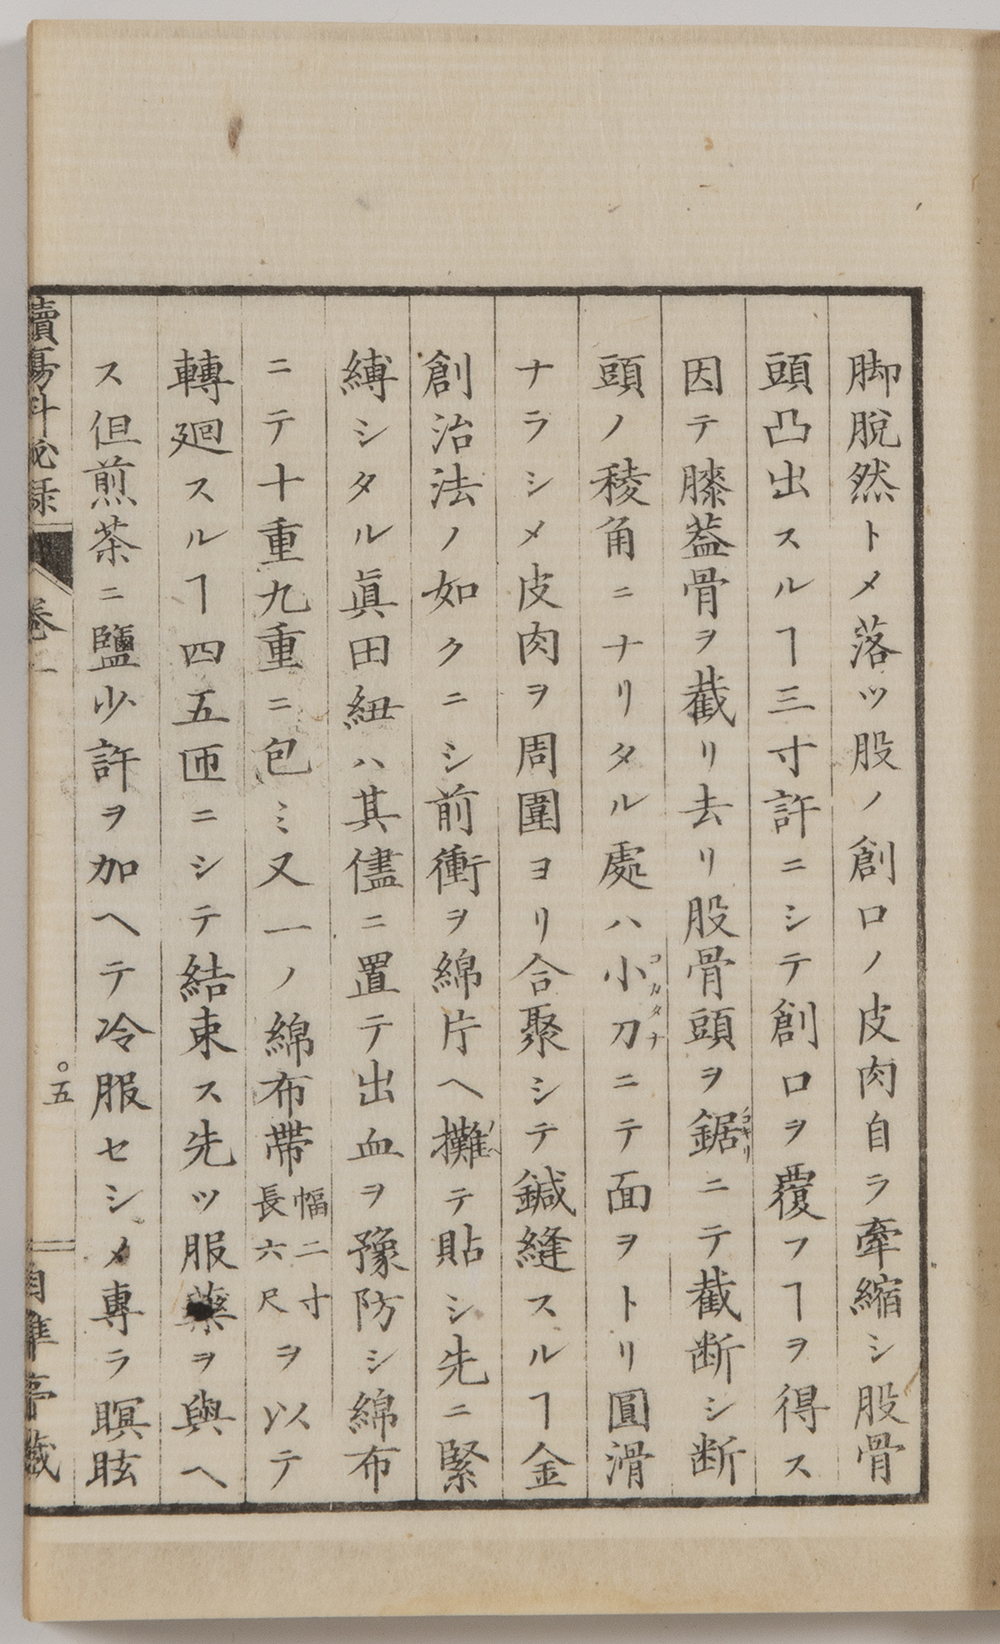 脚脫然トメ落ツ股ノ創口ノ皮肉自ラ牽縮シ股骨
頭凸出スルヿ三寸許ニシテ創口ヲ覆フヿヲ得ス
因テ膝葢骨ヲ截リ去リ股骨頭ヲ鋸ニテ截断シ断
頭ノ稜角ニナリタル處ハ小刀ニテ面ヲトリ圓滑
コカタナ
ナラシメ皮肉ヲ周圍ヨリ合聚シテ鍼縫スルヿ金
創治法ノ如クニシ前衝ヲ綿片ヘ攤テ貼シ先ニ緊
縛シタル眞田紐ハ其儘ニ置テ出血ヲ豫防シ綿布
ニテ十重九重ニ包ミ又一ノ綿布帶幅二寸長六尺ヲ以テ
轉廻スルヿ四五匝ニシテ結束ス先ツ服藥ヲ與ヘ
ス但煎茶ニ鹽少許ヲ加ヘテ冷服セシメ專ラ瞑眩
續瘍科秘録 卷一 ○五 自準亭藏